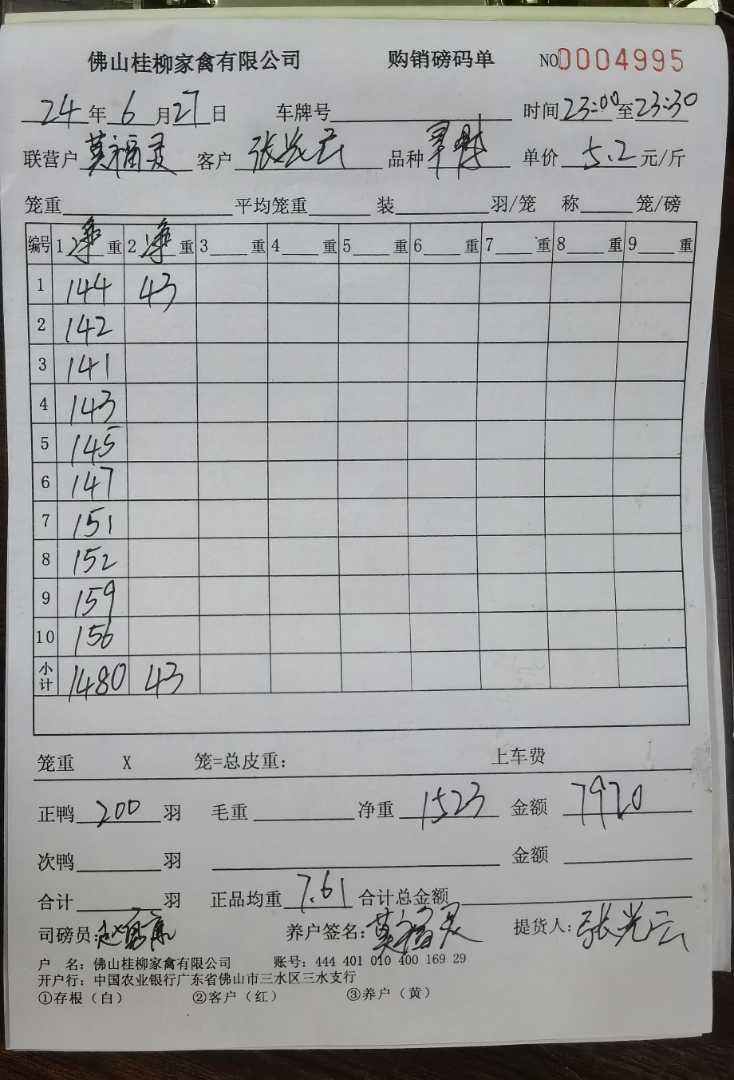 佛山桂柳家禽有限公司 购销磅码单 NO0004995
24年6月27日 车牌号 时间23:00至23:30
联营户莫福灵 客户张光云 品种 单价5.2元/斤
笼重 平均笼重 装 羽/笼 称 笼/磅
编号 1净重 2净重 3 重 4 重 5 重 6 重 7 重 8 重 9 重
1 144 43
2 142
3 141
4 143
5 145
6 147
7 151
8 152
9 159
10 156
小计 1480 43
笼重 X 笼=总皮重： 上车费
正鸭200羽 毛重 净重1523 金额7920
次鸭 羽 金额
合计 羽 正品均重7.61 合计总金额
司磅员: 养户签名:莫福灵 提货人:张光云
户 名：佛山桂柳家禽有限公司 账号：444 401 010 400 169 29
开户行：中国农业银行广东省佛山市三水区三水支行
①存根（白） ②客户（红） ③养户（黄）